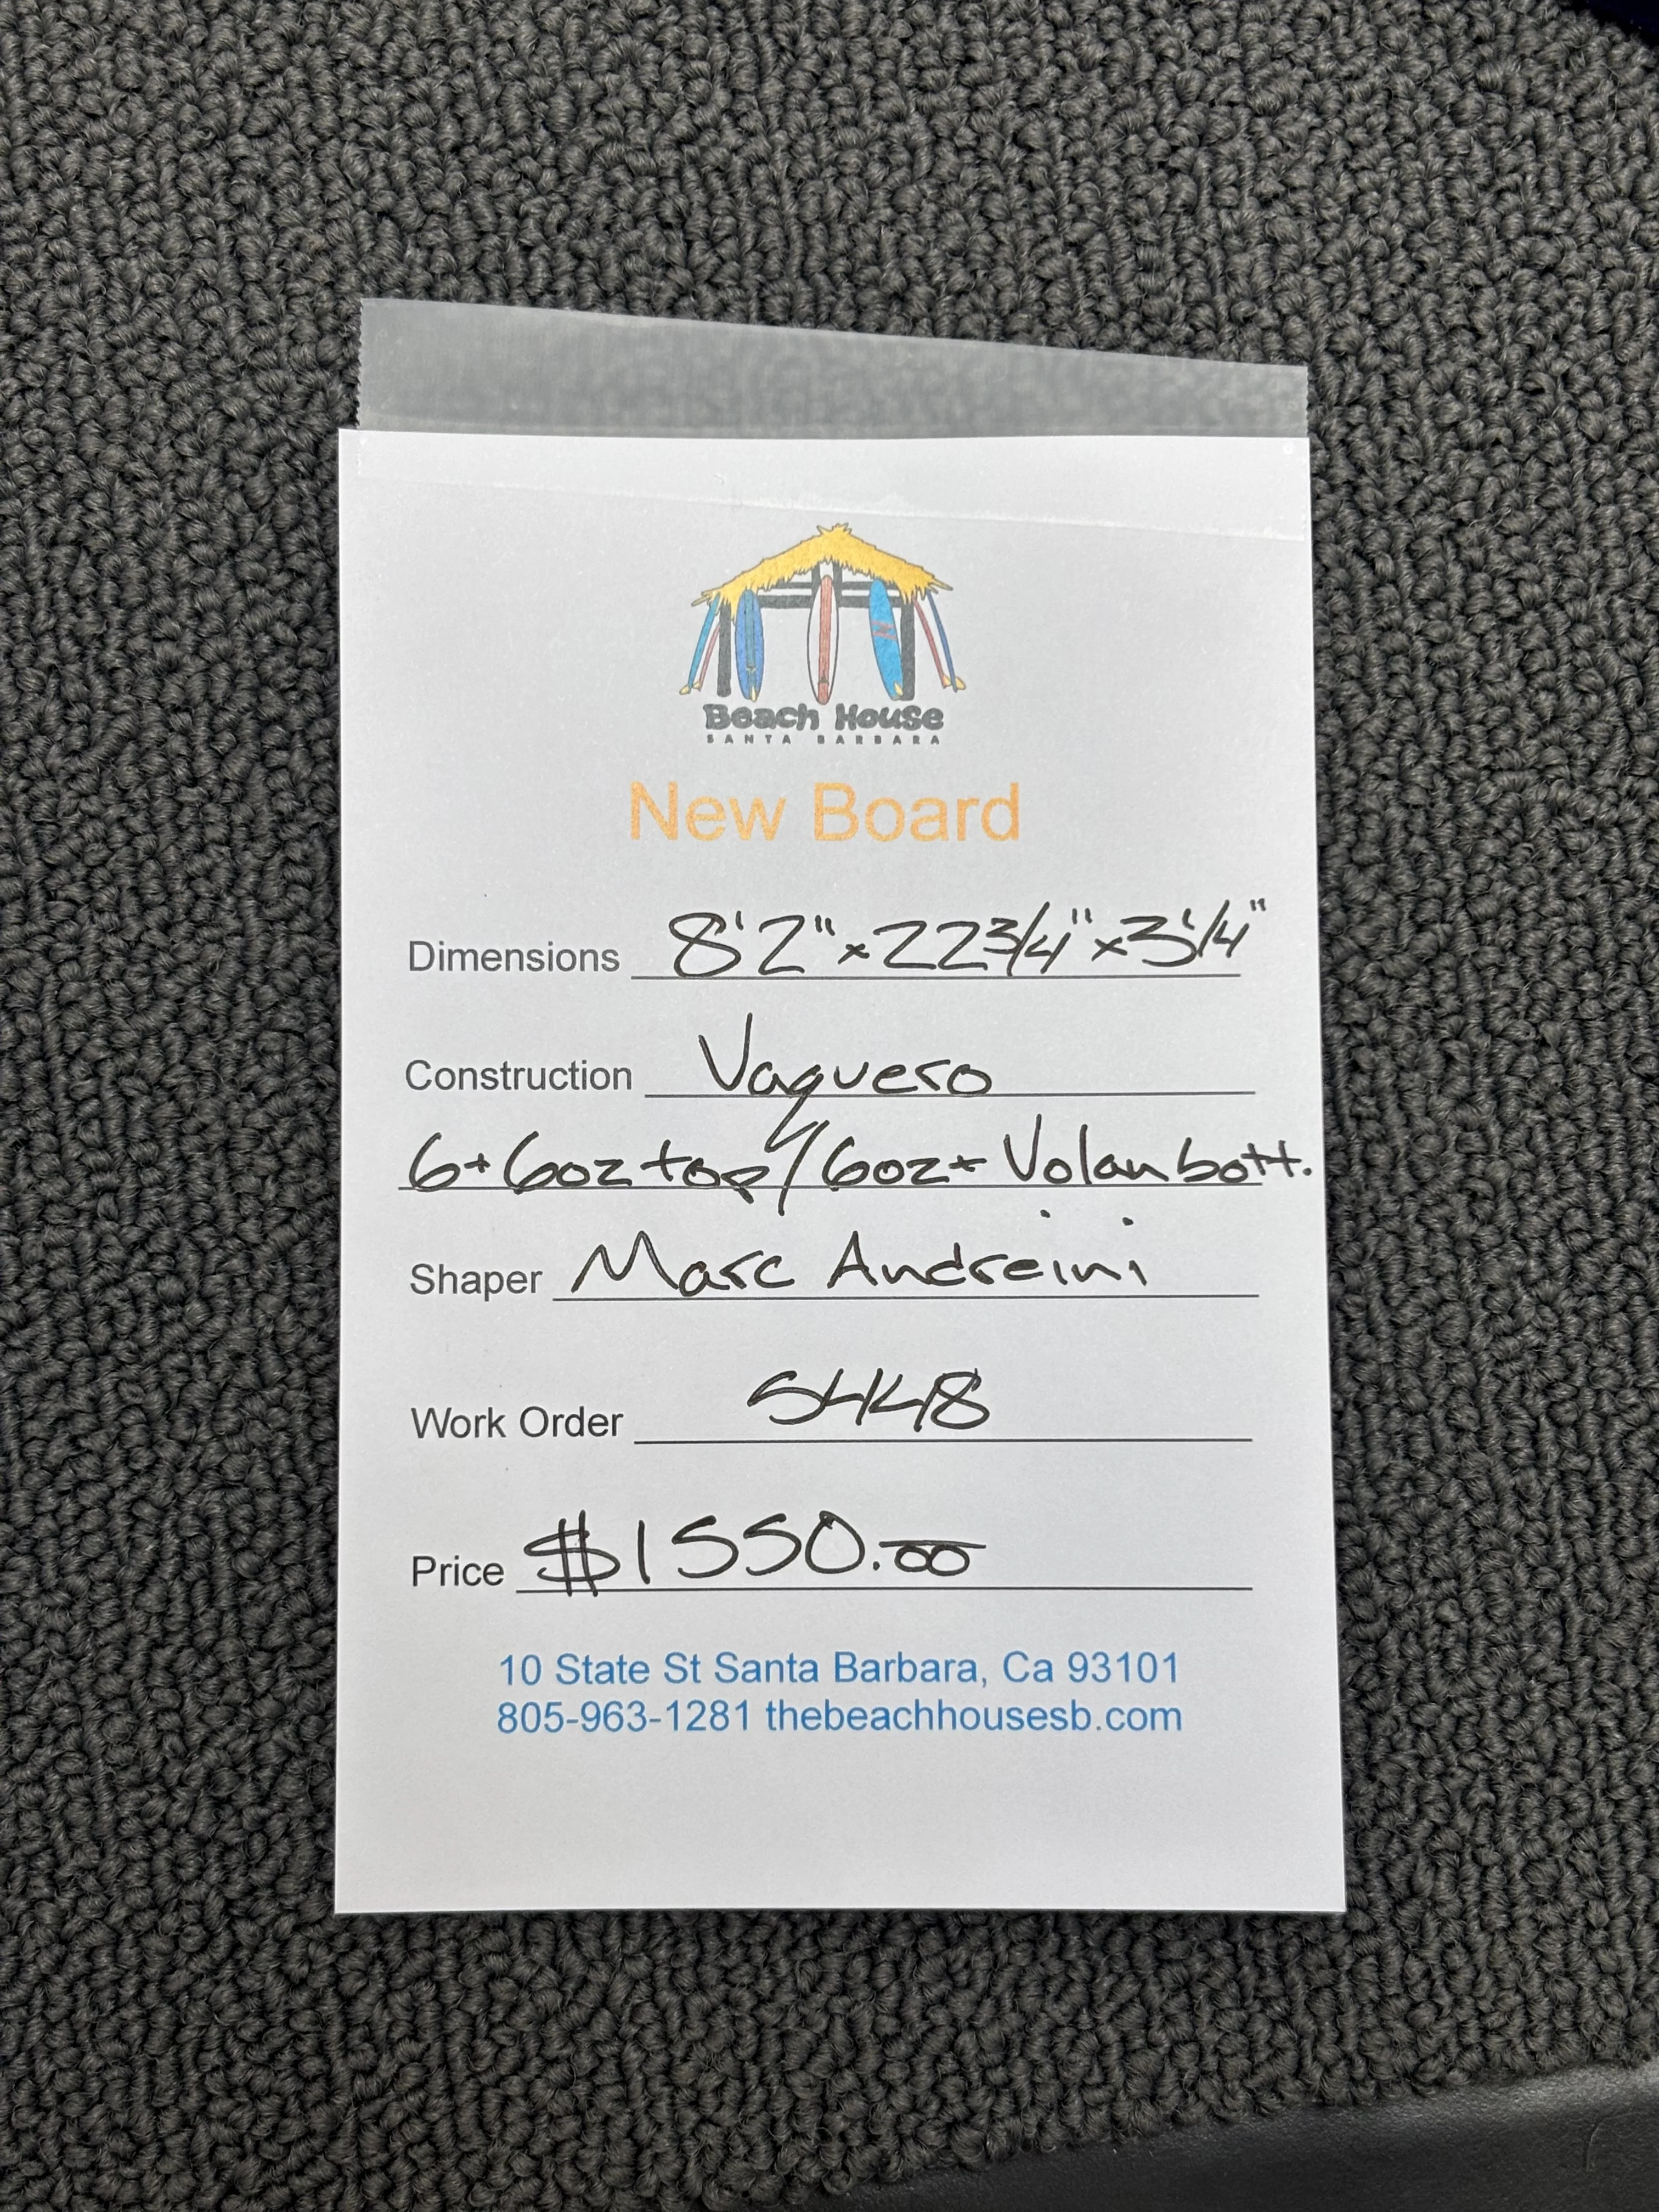 Beach House
SANTA BARBARA
New Board
Dimensions 8'2" x 22 3/4" x 3 1/4"
Construction Vaquero
6+6oz top/6oz+Volan bott.
Shaper Marc Andreini
Work Order 5448
Price $1550.00
10 State St Santa Barbara, Ca 93101
805-963-1281 thebeachhousesb.com